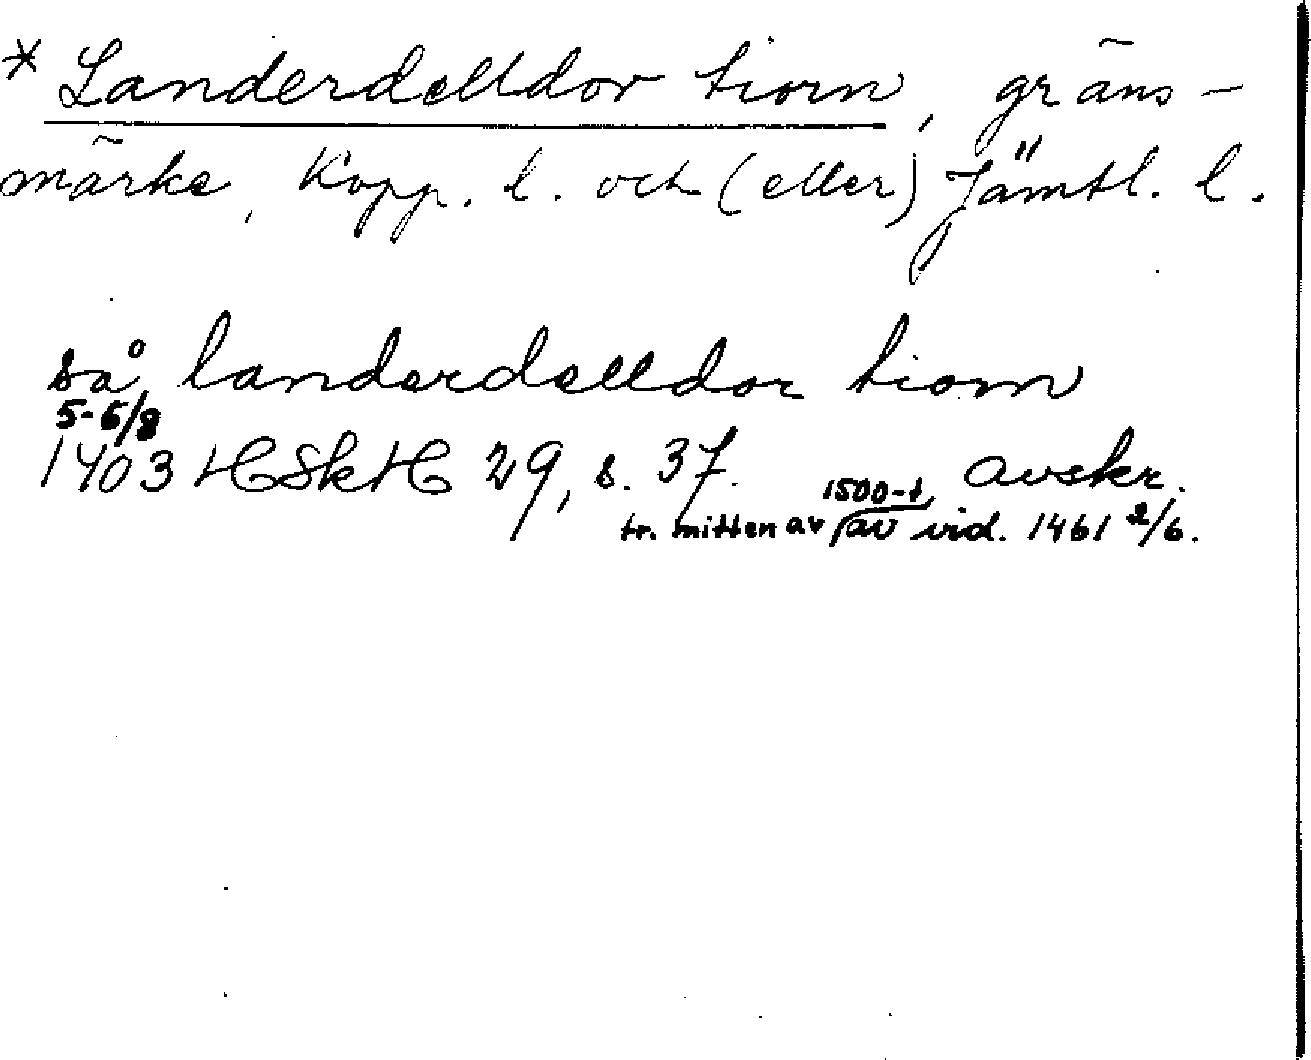 * Landerdelldor tiorn, gräns-
märke, Kopp. l. och (eller) Jämtl. l.
så landerdelldor tiorn
5-6/8
1403 HSkH 29, s. 37. avskr.
tr. mitten av 1500-t. av vid. 1461 2/6.